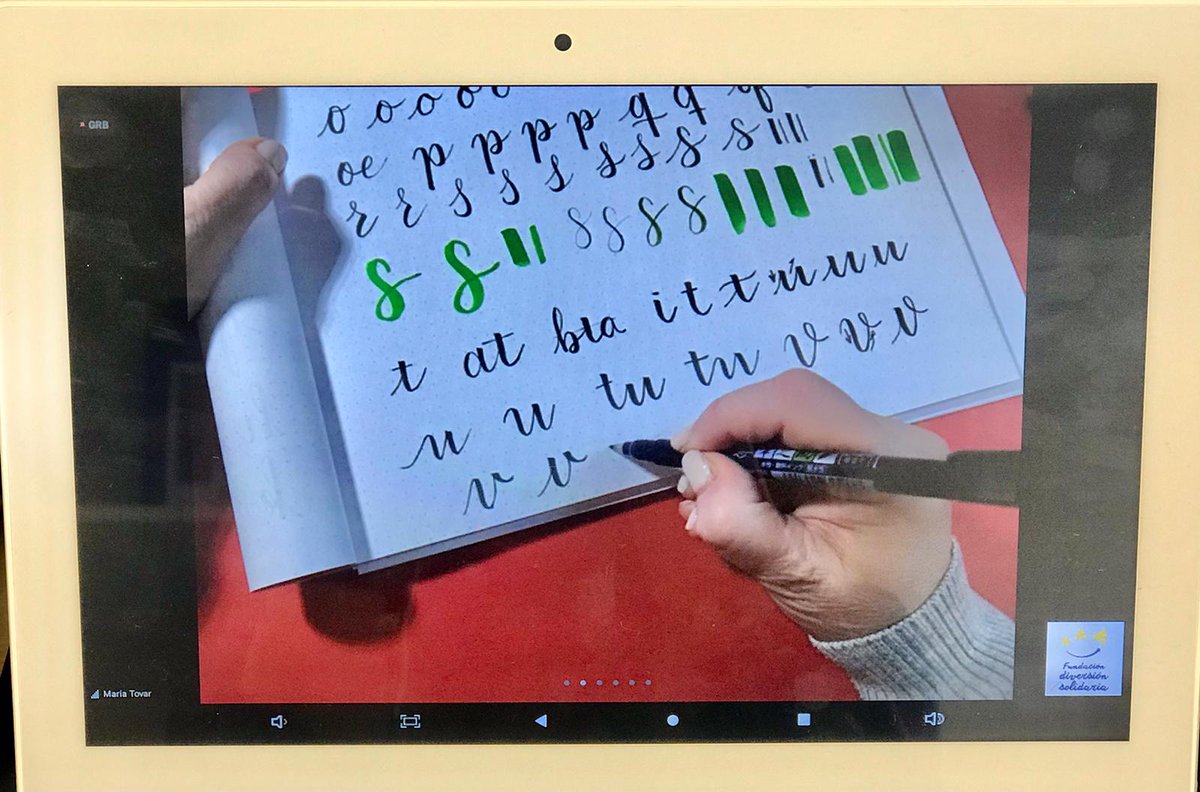 GRB
o o o o o
oe p p p p q q
r r s s s s s s s
s s s s s s
t at bla i t t u u u
u u tu tu v v v
v v
Maria Tovar
Fundación
diversión
solidaria